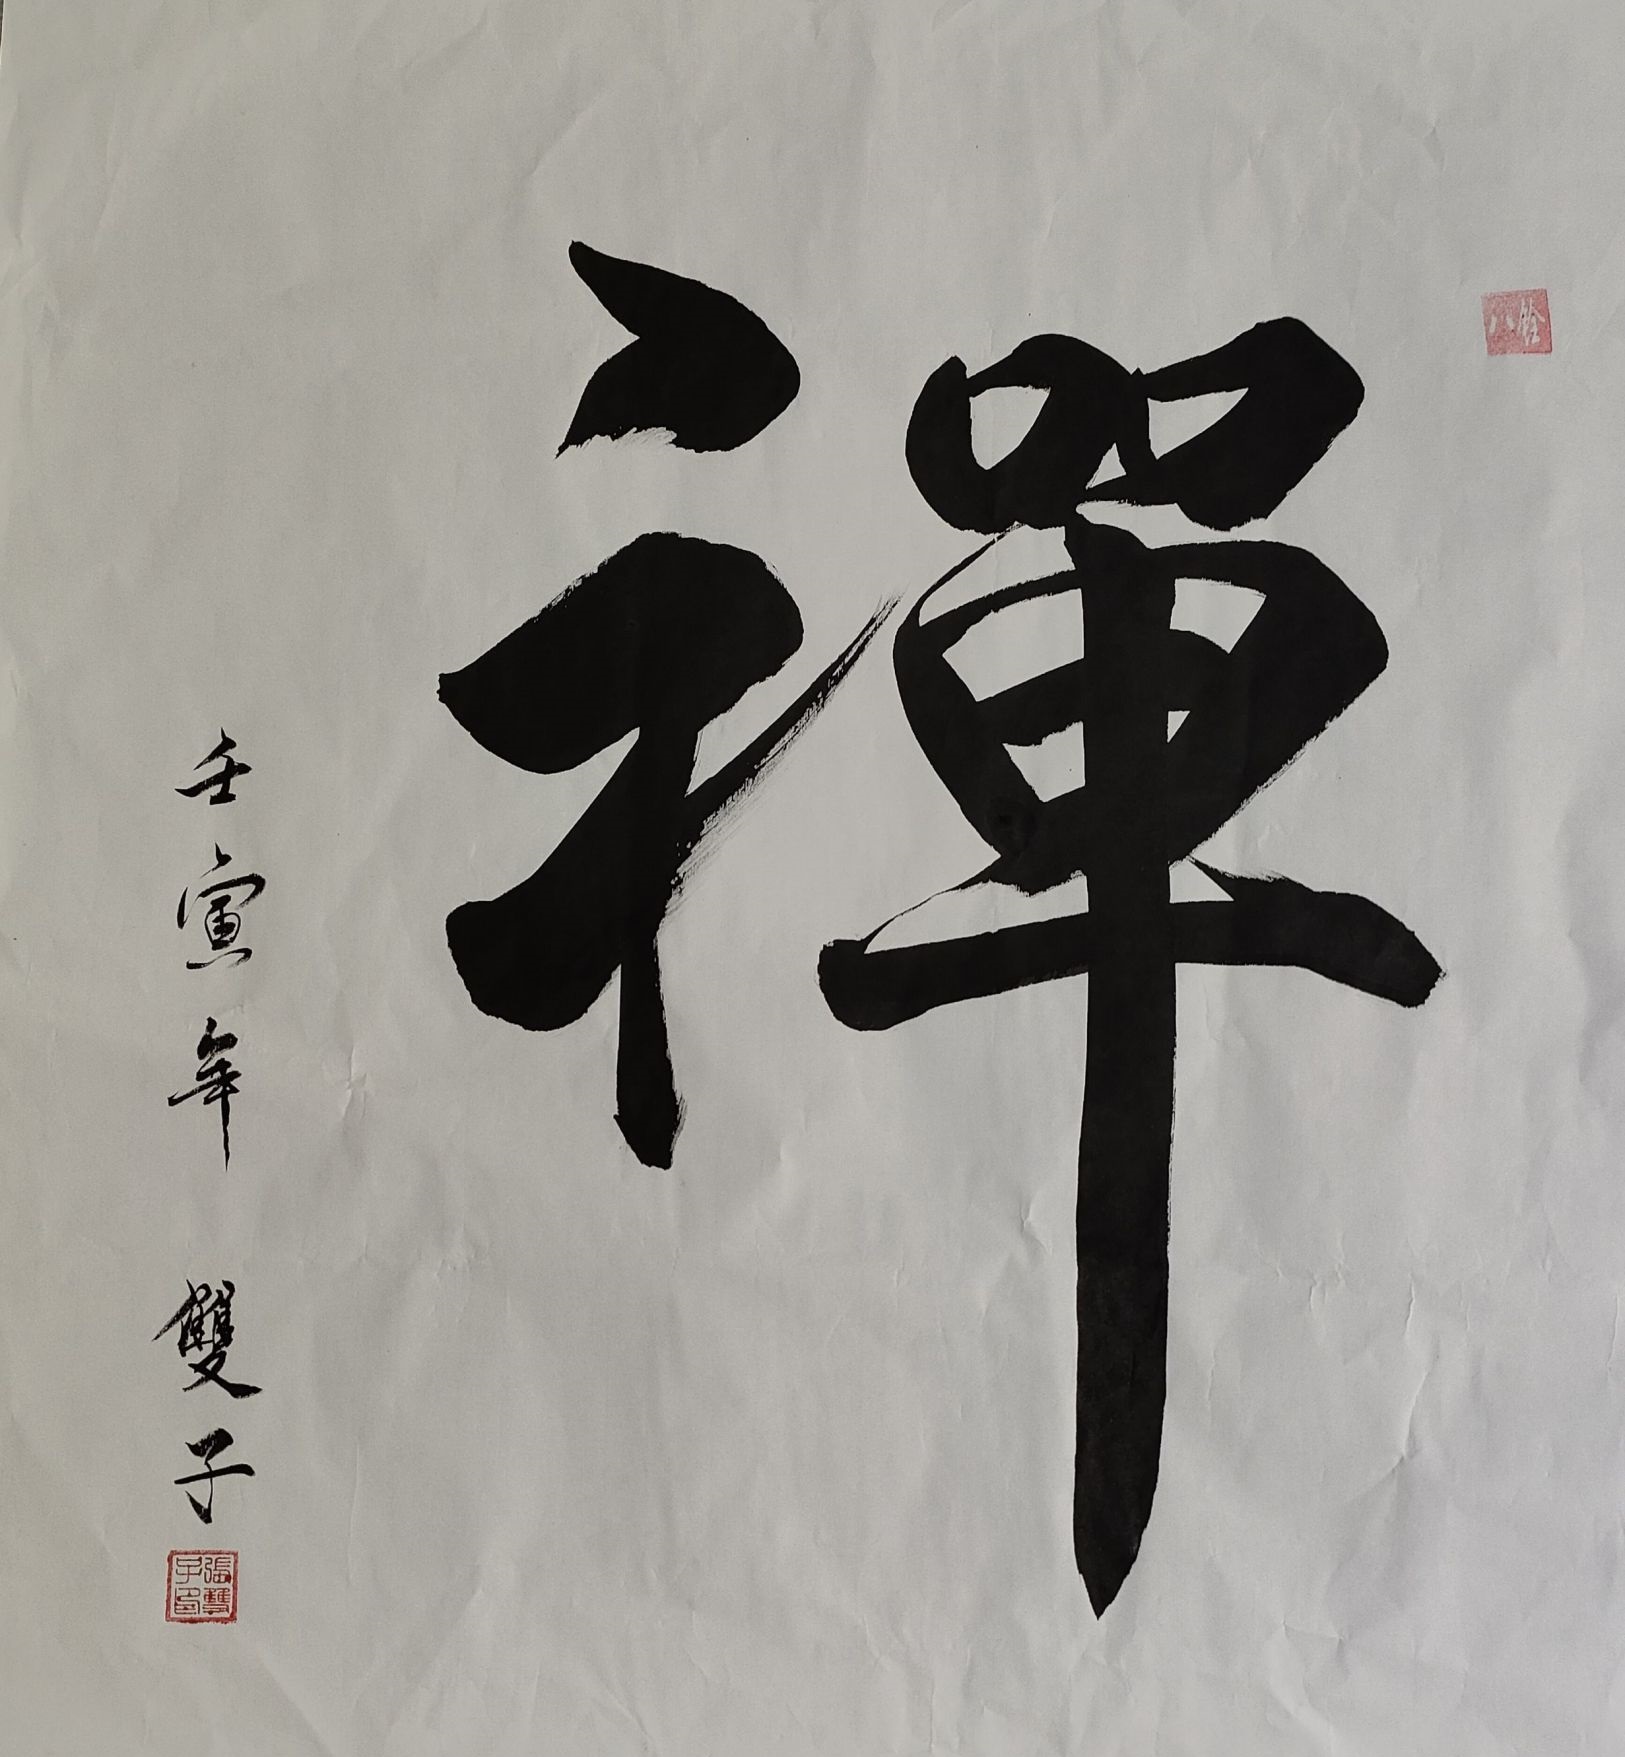 禪
壬寅年 雙子
張雙子印